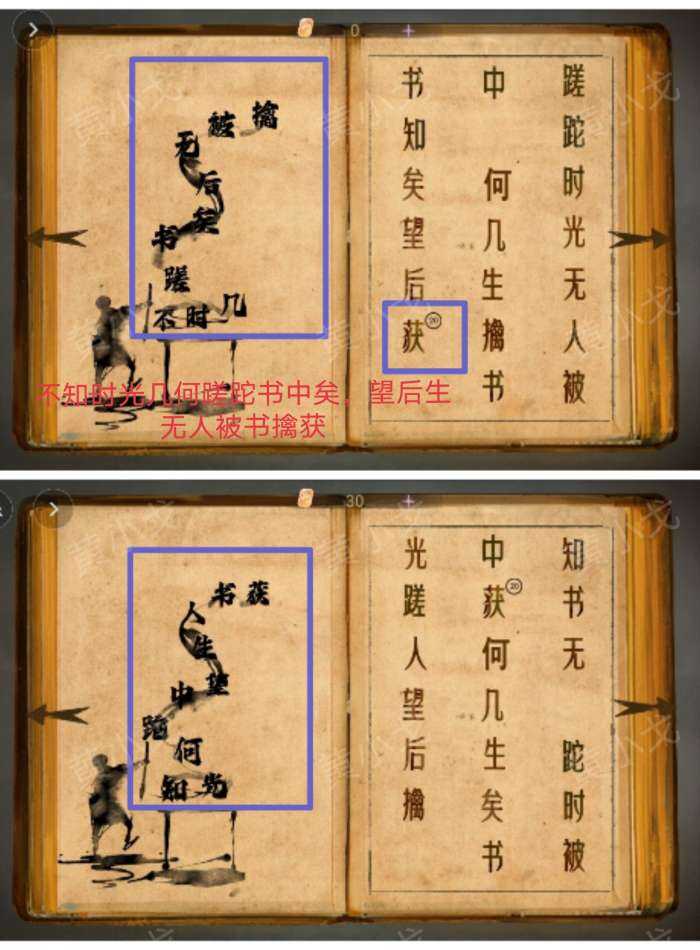 0
被擒
无
后
矣
书
蹉
不时几
蹉跎时光无人被
中 何几生擒书
书知矣望后获⑳
不知时光几何蹉跎书中矣，望后生
无人被书擒获
30
书获
人
生
望
中
跎
何
知光
知书无 跎时被
中获⑳何几生矣书
光蹉人望后擒